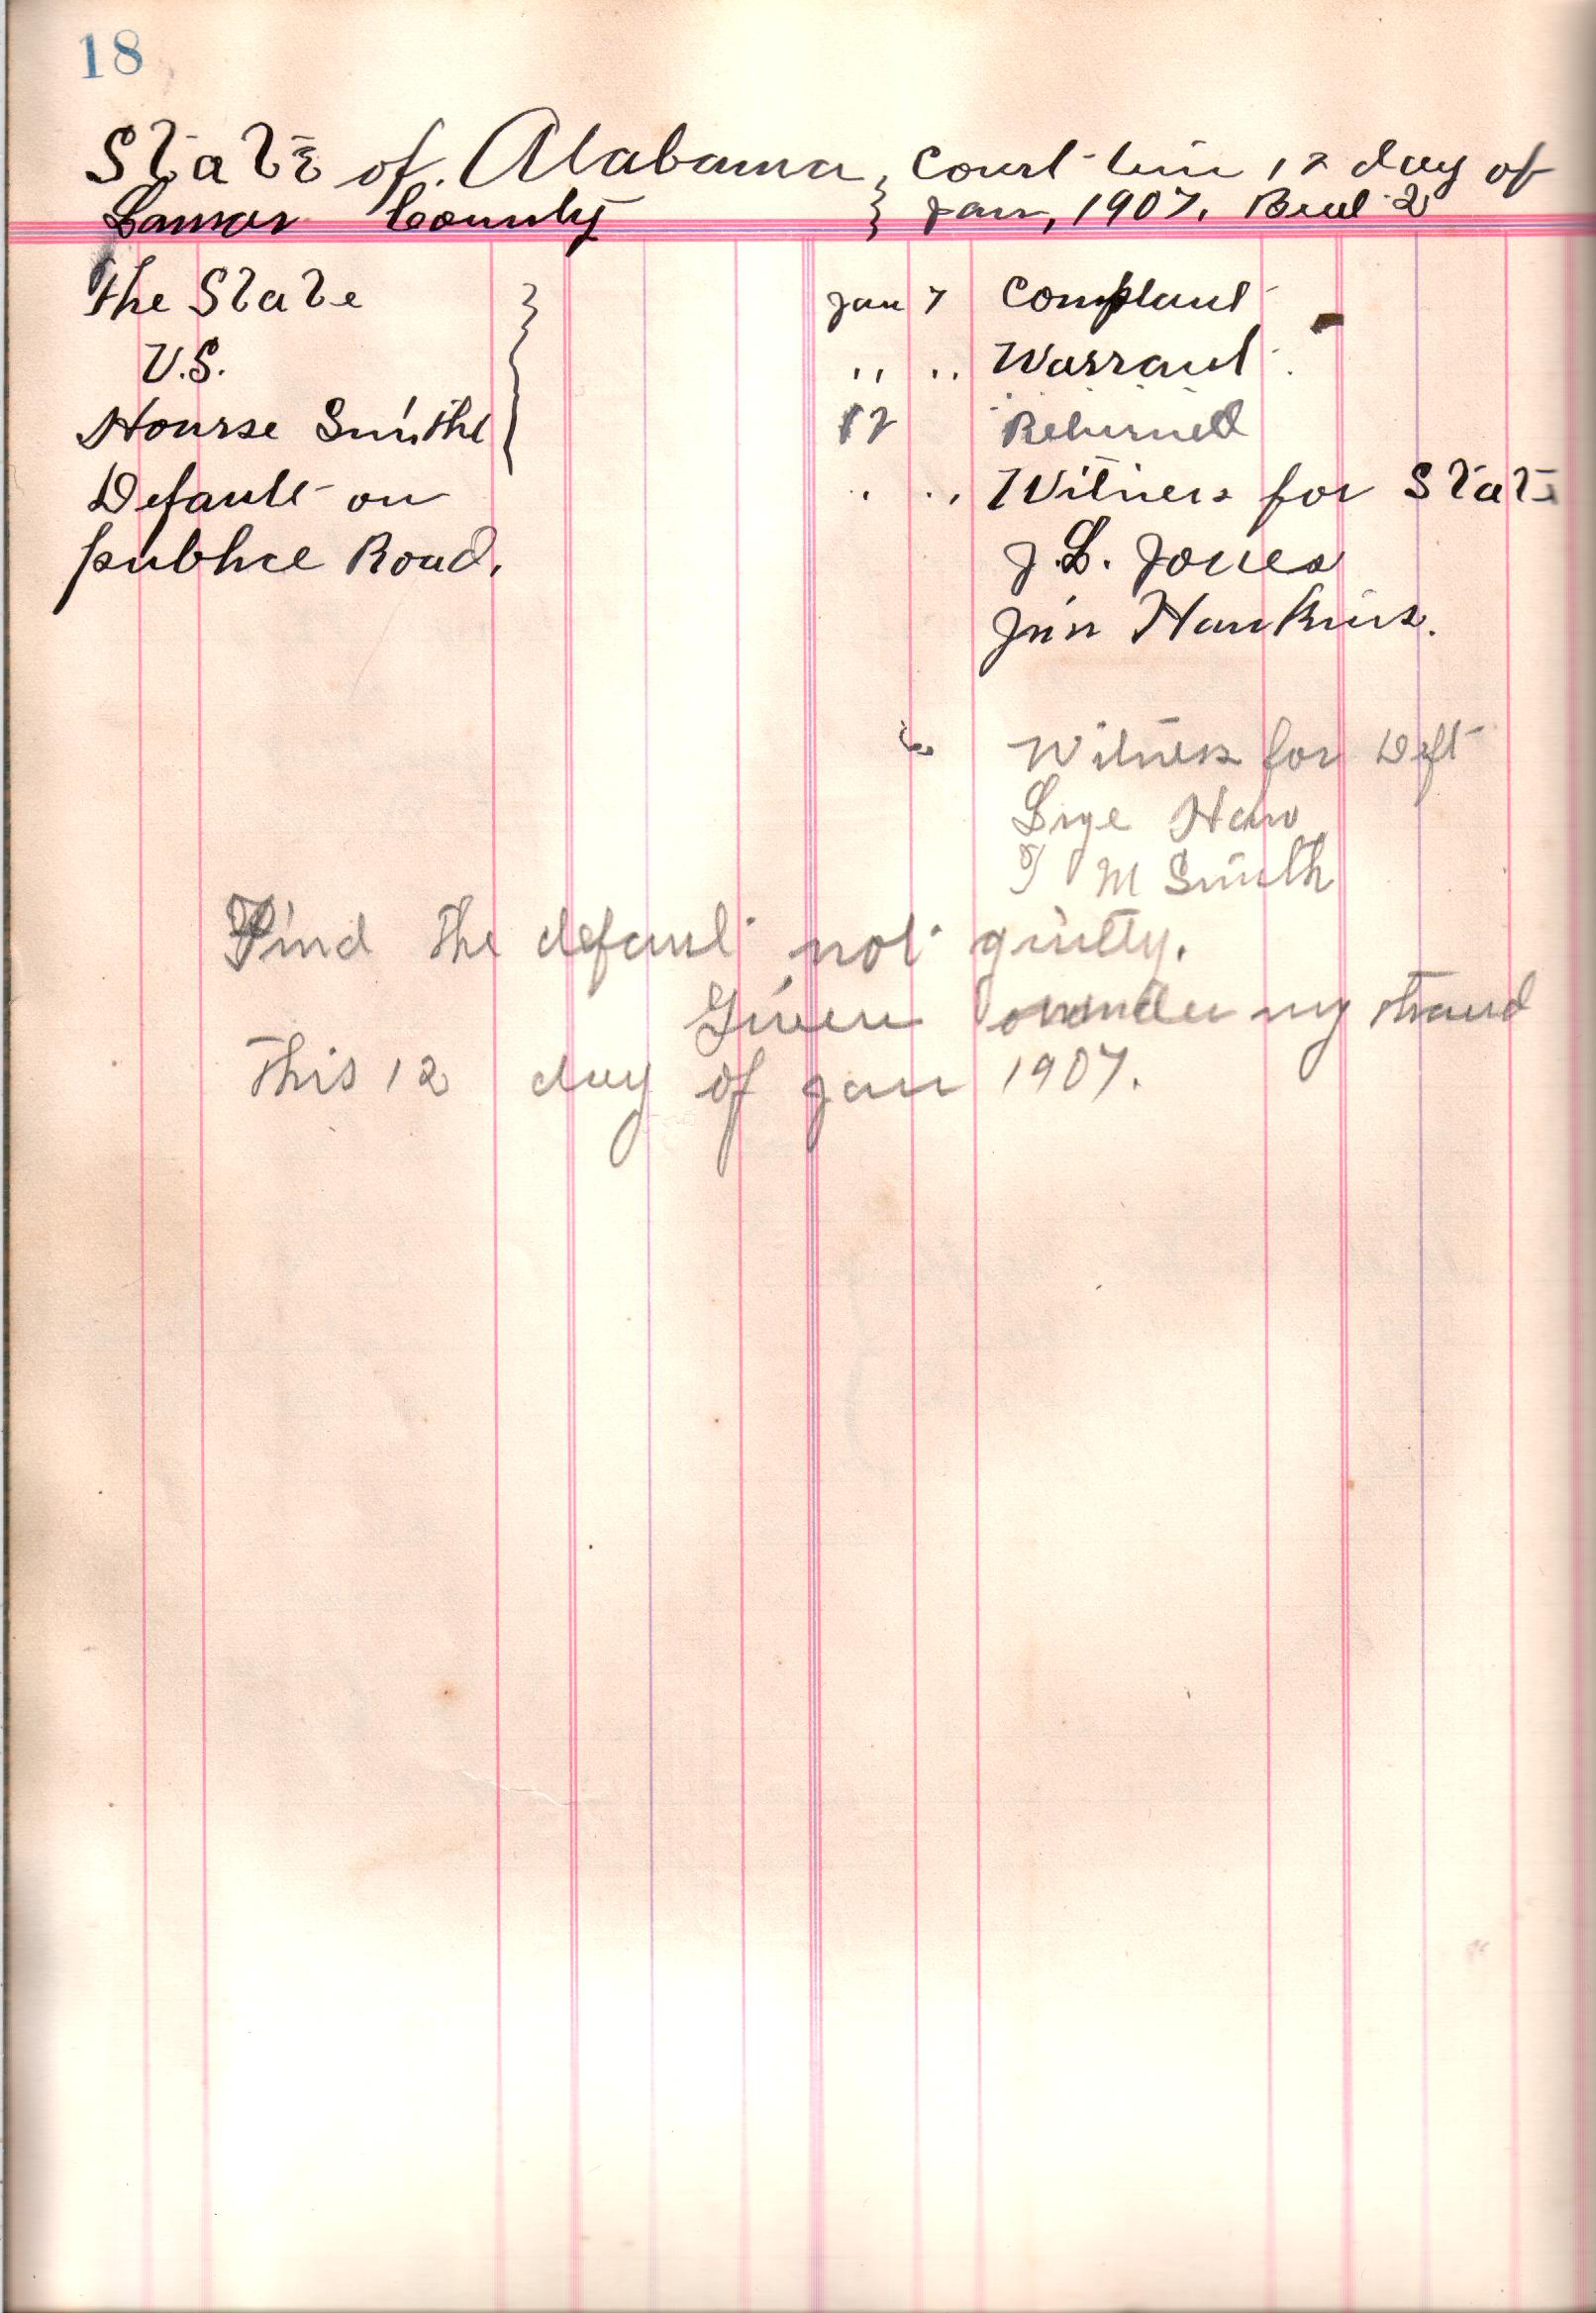 18
State of Alabama } Court time 12 day of
Lamar County } Jan, 1907. Beat 2
The State } Jan 7 Complaint
V.S. " " Warrant
Smith 12 Returned
Default on " " Witness for State
publice Road. J. L. Jones
Jim Hankins.
Witness for Deft
T M Smith
Find the defant not guilty.
Given under my hand
This 12 day of Jan 1907.